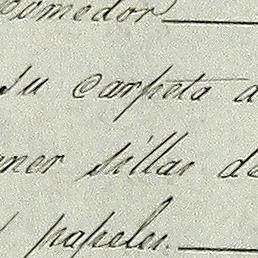 comedor
su carpeta
sillas de
papeles